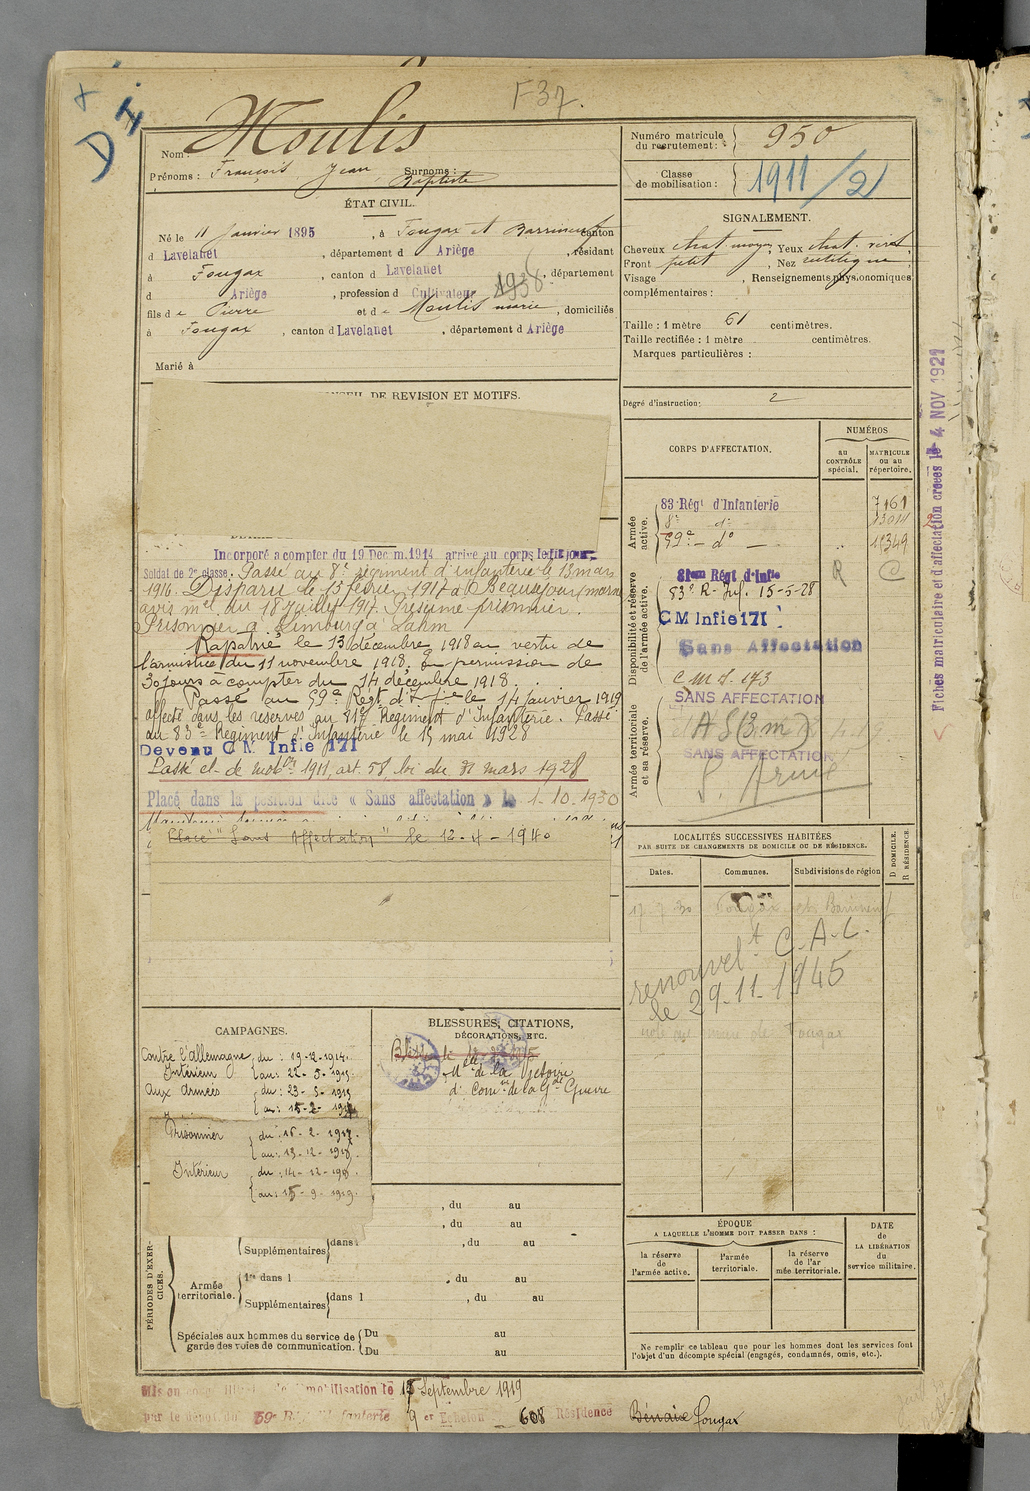 F 37.
D I
Moulis
Nom :
Prénoms : François, Jean, Surnoms :
Baptiste
ÉTAT CIVIL.
Né le 11 Janvier 1895, à Fougax et Barrineuf canton
d Lavelanet, département d Ariège, résidant
à Fougax, canton d Lavelanet, département
d Ariège, profession d Cultivateur 1938
fils de Pierre et de Moulis Marie, domiciliés
à Fougax, canton d Lavelanet, département d Ariège
Marié à
Numéro matricule
du recrutement : 950
Classe
de mobilisation : 1911/2
SIGNALEMENT.
Cheveux chat moyen, Yeux chat. verd
Front petit, Nez rectiligne
Visage , Renseignements physionomiques
complémentaires :
Taille : 1 mètre 61 centimètres.
Taille rectifiée : 1 mètre centimètres.
Marques particulières :
Degré d'instruction : 2
DE REVISION ET MOTIFS.
Incorporé a compter du 19 Decem.1914 arrivé au corps le dit jour
Soldat de 2e classe. Passé au 8e régiment d'infanterie le 13 mars
1916. Disparu le 15 février 1917 à Beauséjour (Marne
avis mel du 18 Juillet 1917. Présumé prisonnier.
Prisonnier à Limburg a Lahm
Rapatrié le 13 décembre 1918 en vertu de
l'armistice du 11 novembre 1918. En permission de
30 jours à compter du 14 décembre 1918.
Passé au 59e Regt d'Inf ie le 14 Janvier 1919
affecté dans les réserves au 81e Régiment d'Infanterie. Passé
au 83e Régiment d'Infanterie le 15 mai 1928
Devenu C M Infie 171
Passé cl. de mobon 1911, art. 58, loi du 31 mars 1928
Placé dans la position dite « Sans affectation » le 1-10-1930
Placé "Sans Affectation" le 12-4-1940
CORPS D'AFFECTATION.
NUMÉROS
au
CONTRÔLE
spécial.
MATRICULE
ou au
répertoire.
Armée
active.
83 Régt d'Infanterie 7161
8e d° 13011
59e d° 15349
Disponibilité et réserve
de l'armée active.
81em Régt d'Infie R C
83e R. Inf. 15-5-28
C M Infie 171
Sans Affectation
C M I. 173
Armée territoriale
et sa réserve.
SANS AFFECTATION
A S (3 m)
SANS AFFECTATION
Fiches matriculaire et d'affectation créées le 4 NOV 1921
LOCALITÉS SUCCESSIVES HABITÉES
PAR SUITE DE CHANGEMENTS DE DOMICILE OU DE RÉSIDENCE.
D DOMICILE.
R RÉSIDENCE.
Dates. Communes. Subdivisions de région
17-9-30 Fougax et Barrineuf
renouvelt C.A.C.
le 29-11-1945
CAMPAGNES.
Contre l'Allemagne, du : 19-12-1914.
Intérieur au : 22-5-1915.
Aux Armées du : 23-5-1915
au : 15-2-1917
Prisonnier du : 16-2-1917.
au : 13-12-1918.
Intérieur du : 14-12-1918.
au : 15-9-1919.
BLESSURES, CITATIONS,
DÉCORATIONS, ETC.
Mlle de la Victoire
d° Comve de la Gde Guerre
PÉRIODES D'EXER-
CICES.
, du au
, du au
Supplémentaires dans l , du au
Armée
territoriale.
1re dans l , du au
Supplémentaires dans l , du au
Spéciales aux hommes du service de
garde des voies de communication.
Du au
Du au
ÉPOQUE
A LAQUELLE L'HOMME DOIT PASSER DANS :
DATE
de
LA LIBÉRATION
du
service militaire.
la réserve
de
l'armée active.
l'armée
territoriale.
la réserve
de l'ar
mée territoriale.
Ne remplir ce tableau que pour les hommes dont les services font
l'objet d'un décompte spécial (engagés, condamnés, omis, etc.).
Mis en congé illimité de démobilisation le 15 Septembre 1919
par le dépôt du 59e Régt d'Infanterie 9 er Echelon 608 Résidence Bénaix Fougax